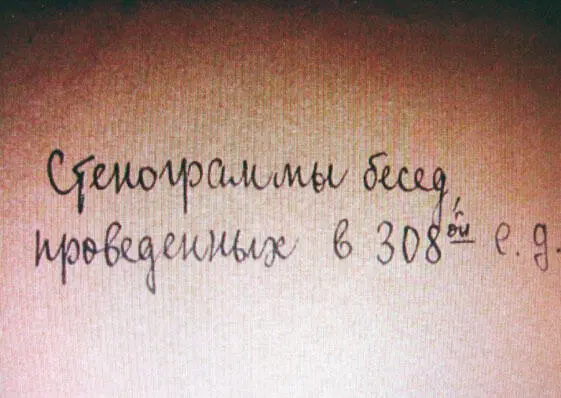 Стенограммы бесед,
проведенных в 308ой с.д.